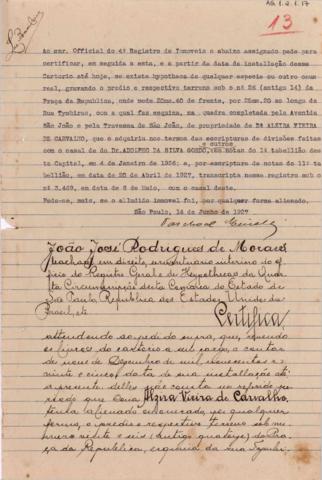 AG.1.2.1.17
13
Ao snr. Official do 4º Registro de Immoveis o abaixo assignado pede para
certificar, em seguida a esta, e a partir da data da installação desse
Cartorio até hoje, se existe hypotheca de qualquer especie ou outro onus
real, gravando o predio e respectivo terreno sob nº 26 (antigo 14) da
Praça da Republica, onde mede 20ms.40 de frente, por 25ms.20 ao longo da
Rua Tymbiras, com a qual faz esquina, na quadra completada pela Avenida
São João e pela Travessa de São João, de propriedade de Dª ALZIRA VIEIRA
DE CARVALHO, que o adquiriu nos termos das escripturas de divisões feitas
e outros
com o casal do Dr. ADOLPHO DA SILVA GORDO, em notas do 1º tabellião desta
Capital, em 4 de Janeiro de 1926; e, por escriptura de notas do 11º ta-
bellião, em data de 20 de Abril de 1927, transcripta nesse registro sob o
nº 3.409, em data de 6 de Maio, com o casal deste.
Pede-se, mais, se o alludido immovel foi, por qualquer forma, alienado.
São Paulo, 14 de Junho de 1927
João José Rodrigues de Moraes,
bacharel em direito, serventuario interino do of-
ficio do Registro Geral e de Hypothecas da Quar-
ta Circumscripção desta Comarca do Estado de
São Paulo, Republica dos Estados Unidos do
Brasil, etc
Certifica,
attendendo ao pedido supra, que, revendo
os livros do cartorio a seu cargo, a contar
de nove de Dezembro de mil novecentos e
vinte e cinco, data de sua installação até
o presente delles não consta no referido pe-
riodo que Dona Alzira Vieira de Carvalho,
tenha alienado ou onerado, por qualquer
forma, o predio e respectivo terreno sob nu-
mero vinte e seis (antigo quatorze) da Pra-
ça da Republica, esquina da rua Tymbi-